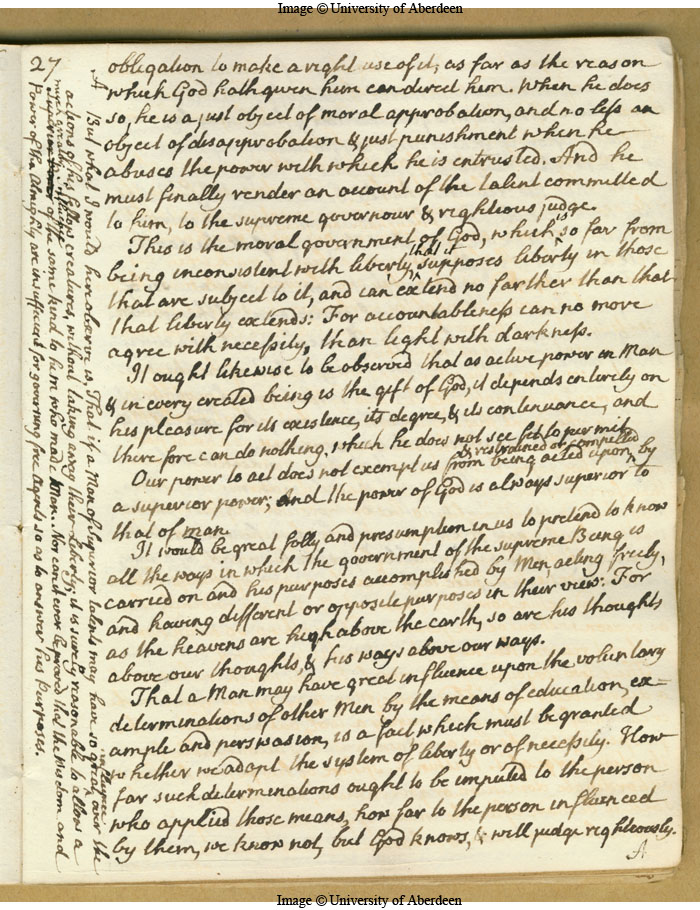 Image © University of Aberdeen
27
obligation to make a right use of it, as far as the reason
which God hath given him can direct him. When he does
so, he is a just object of moral approbation, and no less an
object of disapprobation & just punishment when he
abuses the power with which he is entrusted. And he
must finally render an account of the talent committed
to him, to the supreme governour & righteous judge.
This is the moral government of God, which is so far from
being inconsistent with liberty, that it supposes liberty in those
that are subject to it, and can extend no farther than that
that liberty extends: For accountableness can no more
agree with necessity, than light with darkness.
It ought likewise to be observed that as active power in Man
& in every created being is the gift of God, it depends entirely on
his pleasure for its existence, its degree, & its continuance, and
therefore can do nothing, which he does not see fit to permit
Our power to act does not exempt us from being acted upon, & restrained or compelled by
a superior power; And the power of God is always superior to
that of man.
It would be great folly and presumption in us to pretend to know
all the ways in which the government of the supreme Being is
carried on and his purposes accomplished by Men, acting freely,
and having different or opposite purposes in their view: For
as the heavens are high above the earth, so are his thoughts
above our thoughts, & his ways above our ways.
That a Man may have great influence upon the voluntary
determinations of other Men by the means of education, ex=
ample and perswasion, is a fact which must be granted
whether we adapt the system of liberty or of necessity. How
far such determinations ought to be imputed to the person
who applied those means, how far to the person influenced
by them, we know not, but God knows, & will judge righteously.
A
A But what I would here observe is, That if a Man of superior talents may have so great influence over the
actions of his fellow creatures, without taking away their Liberty; it is surely reasonable to allow a
much greater influence of the same kind to him who made Man. Nor can it ever be proved that the Wisdom and
Power of the Almighty are insufficient for governing free Agents so as to answer his Purposes.
Image © University of Aberdeen